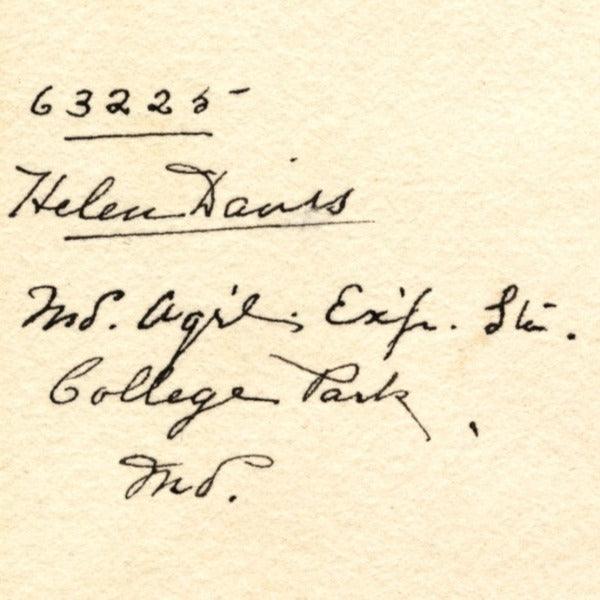 63225
Helen Davis
Md. Agr'l. Exp. Sta.
College Park,
Md.